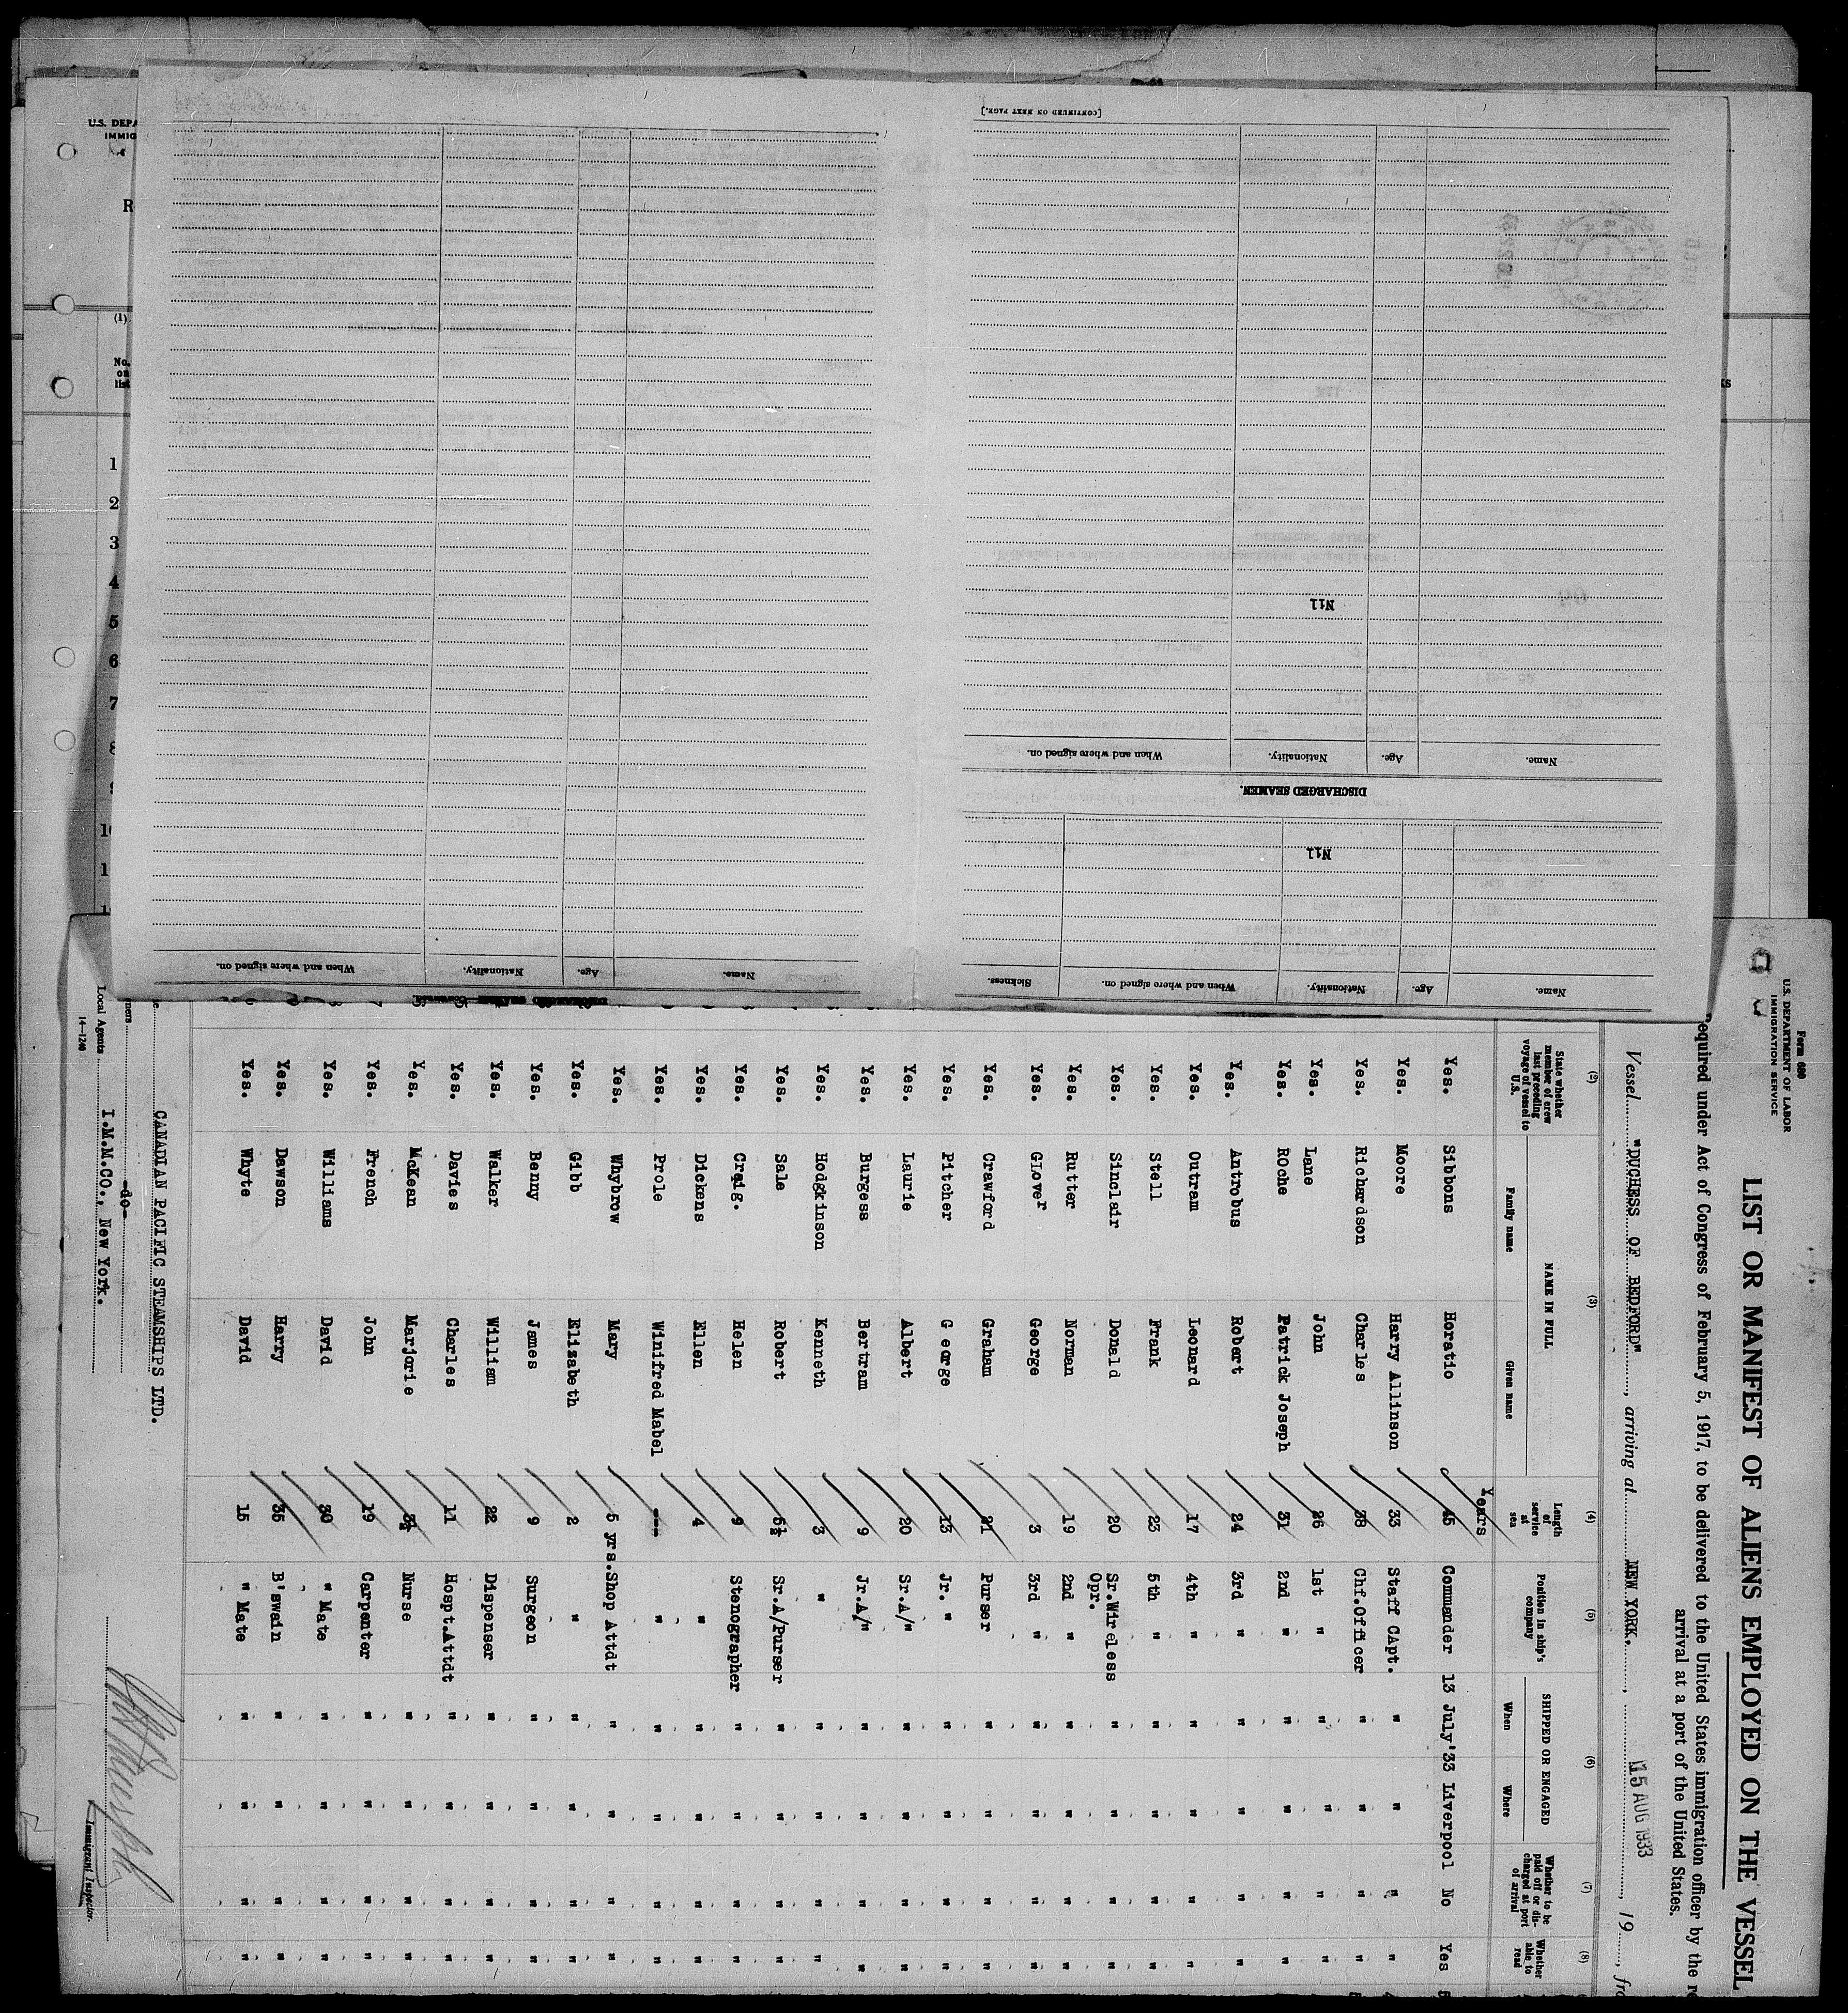 [CONTINUED ON NEXT PAGE.]
Nil
Name. Age. Nationality. When and where signed on.
DISCHARGED SEAMEN.
Nil
Name. Age. Nationality. When and where signed on. Sickness.
Name. Age. Nationality. When and where signed on.
U.S. DEPA
IMMIG
R
(1)
No.
on
list
1
2
3
4
5
6
7
8
Form 680
U.S. DEPARTMENT OF LABOR
IMMIGRATION SERVICE
LIST OR MANIFEST OF ALIENS EMPLOYED ON THE VESSEL
Required under Act of Congress of February 5, 1917, to be delivered to the United States immigration officer by the re
arrival at a port of the United States.
Vessel "DUCHESS OF BEDFORD", arriving at NEW YORK., 15 AUG 1933, 19, fro
(2) (3) (4) (5) (6) (7) (8)
State whether member of crew last preceding voyage of vessel to U.S. NAME IN FULL Family name Given name Length of service at sea Position in ship's company SHIPPED OR ENGAGED When Where Whether to be paid off or discharged at port of arrival Whether able to read
Years
Yes. Sibbons Horatio 45 Commander 13 July'33 Liverpool No Yes
Yes. Moore Harry Allinson 33 Staff CApt. " " " "
Yes. Richardson Charles 38 Chf.Officer " " " "
Yes. Lane John 26 1st " " " " "
Yes. ROche Patrick Joseph 31 2nd " " " " "
Yes. Antrobus Robert 24 3rd " " " " "
Yes. Outram Leonard 17 4th " " " " "
Yes. Stell Frank 23 5th " " " " "
Yes. Sinclair Donald 20 Sr.Wireless Opr. " " " "
Yes. Rutter Norman 19 2nd " " " " "
Yes. GLover George 3 3rd " " " " "
Yes. Crawford Graham 21 Purser " " " "
Yes. Pitcher G eorge 13 Jr. " " " " "
Yes. Laurie Albert 20 Sr.A/" " " " "
Yes. Burgess Bertram 9 Jr.A/" " " " "
Yes. Hodgkinson Kenneth 3 " " " " "
Yes. Sale Robert 5½ Sr.A/Purser " " " "
Yes. Craig. Helen 9 Stenographer " " " "
Yes. Dickens Ellen 4 " " " " "
Yes. Prole Winifred Mabel --- " " " " "
Yes. Whybrow Mary 5 yrs. Shop Attdt " " " "
Yes. Gibb Elizabeth 2 " " " " "
Yes. Benny James 9 Surgeon " " " "
Yes. Walker William 22 Dispenser " " " "
Yes. Davies Charles 11 Hospt.Attdt " " " "
Yes. McKean Marjorie 3½ Nurse " " " "
Yes. French John 19 Carpenter " " " "
Yes. Williams David 30 " Mate " " " "
Yes. Dawson Harry 35 B'swain " " " "
Yes. Whyte David 15 " Mate " " " "
CANADIAN PACIFIC STEAMSHIPS LTD.
-do-
Local Agents I.M.M.CO., New York.
Immigrant Inspector.
14—1240